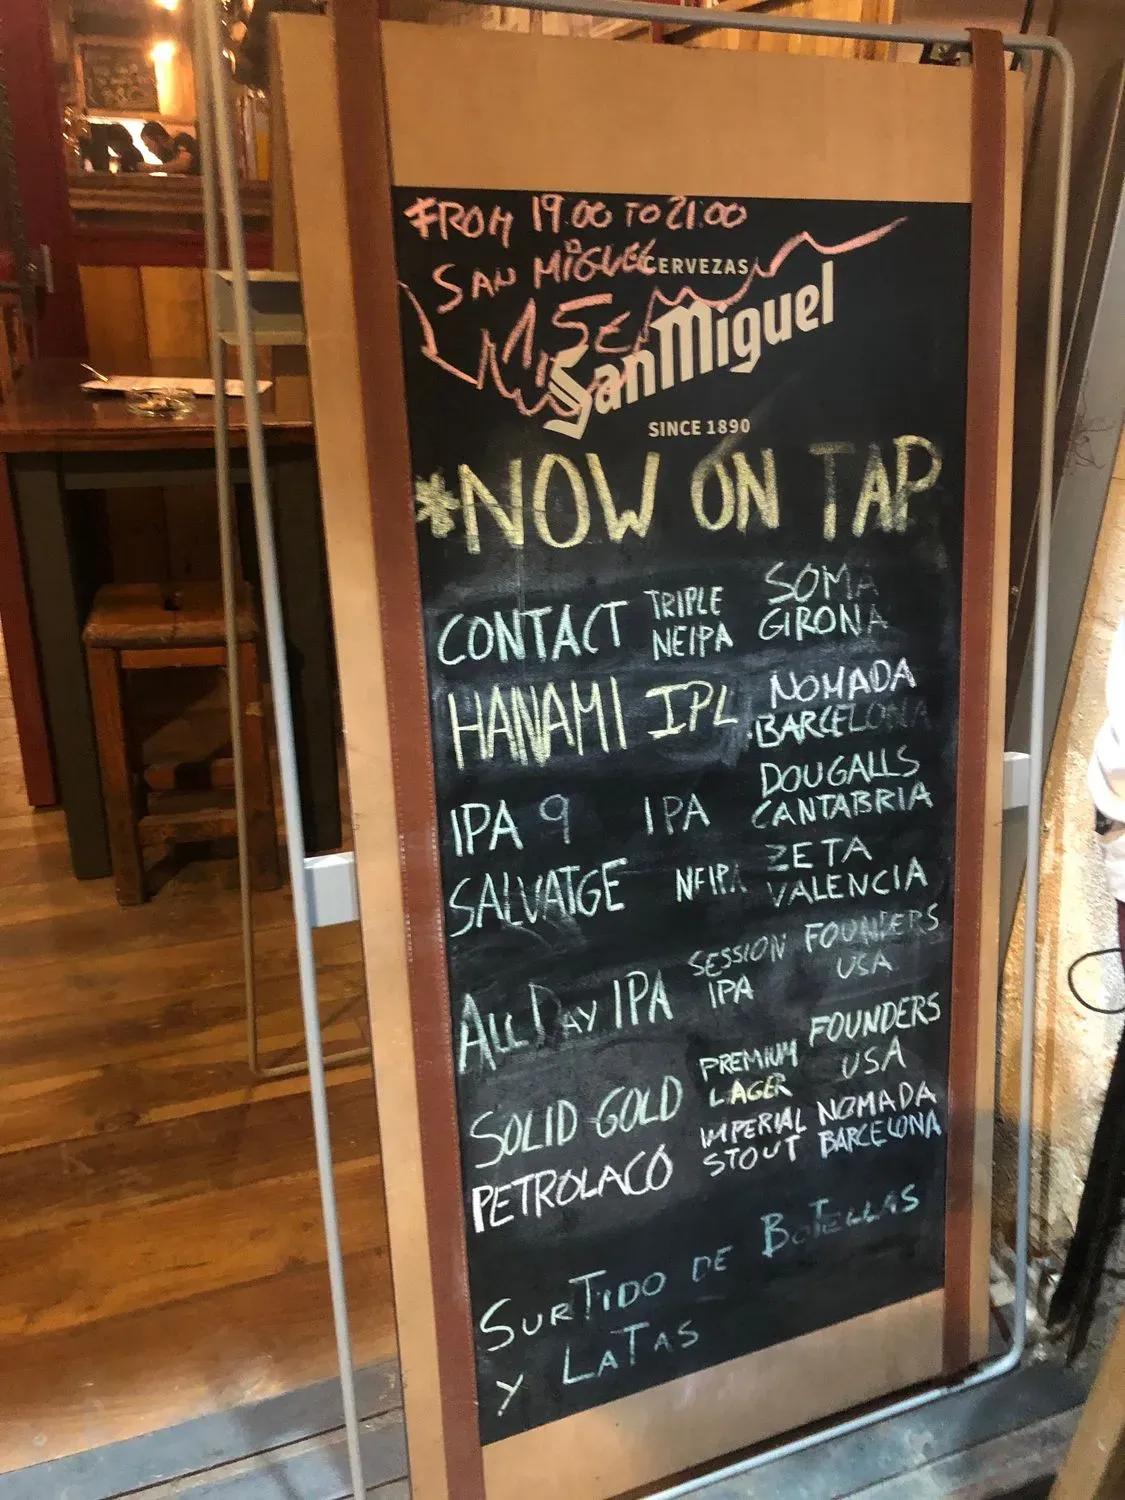 FROM 19.00 TO 21:00
SAN MIGUEL
1'5€
CERVEZAS
San Miguel
SINCE 1890
*NOW ON TAP
CONTACT TRIPLE NEIPA SOMA GIRONA
HANAMI IPL NOMADA BARCELONA
IPA 9 IPA DOUGALLS CANTABRIA
SALVATGE NEIPA ZETA VALENCIA
ALL DAY IPA SESSION IPA FOUNDERS USA
SOLID GOLD PREMIUM LAGER FOUNDERS USA
PETROLACO IMPERIAL STOUT NOMADA BARCELONA
SURTIDO DE BOTELLAS
Y LATAS